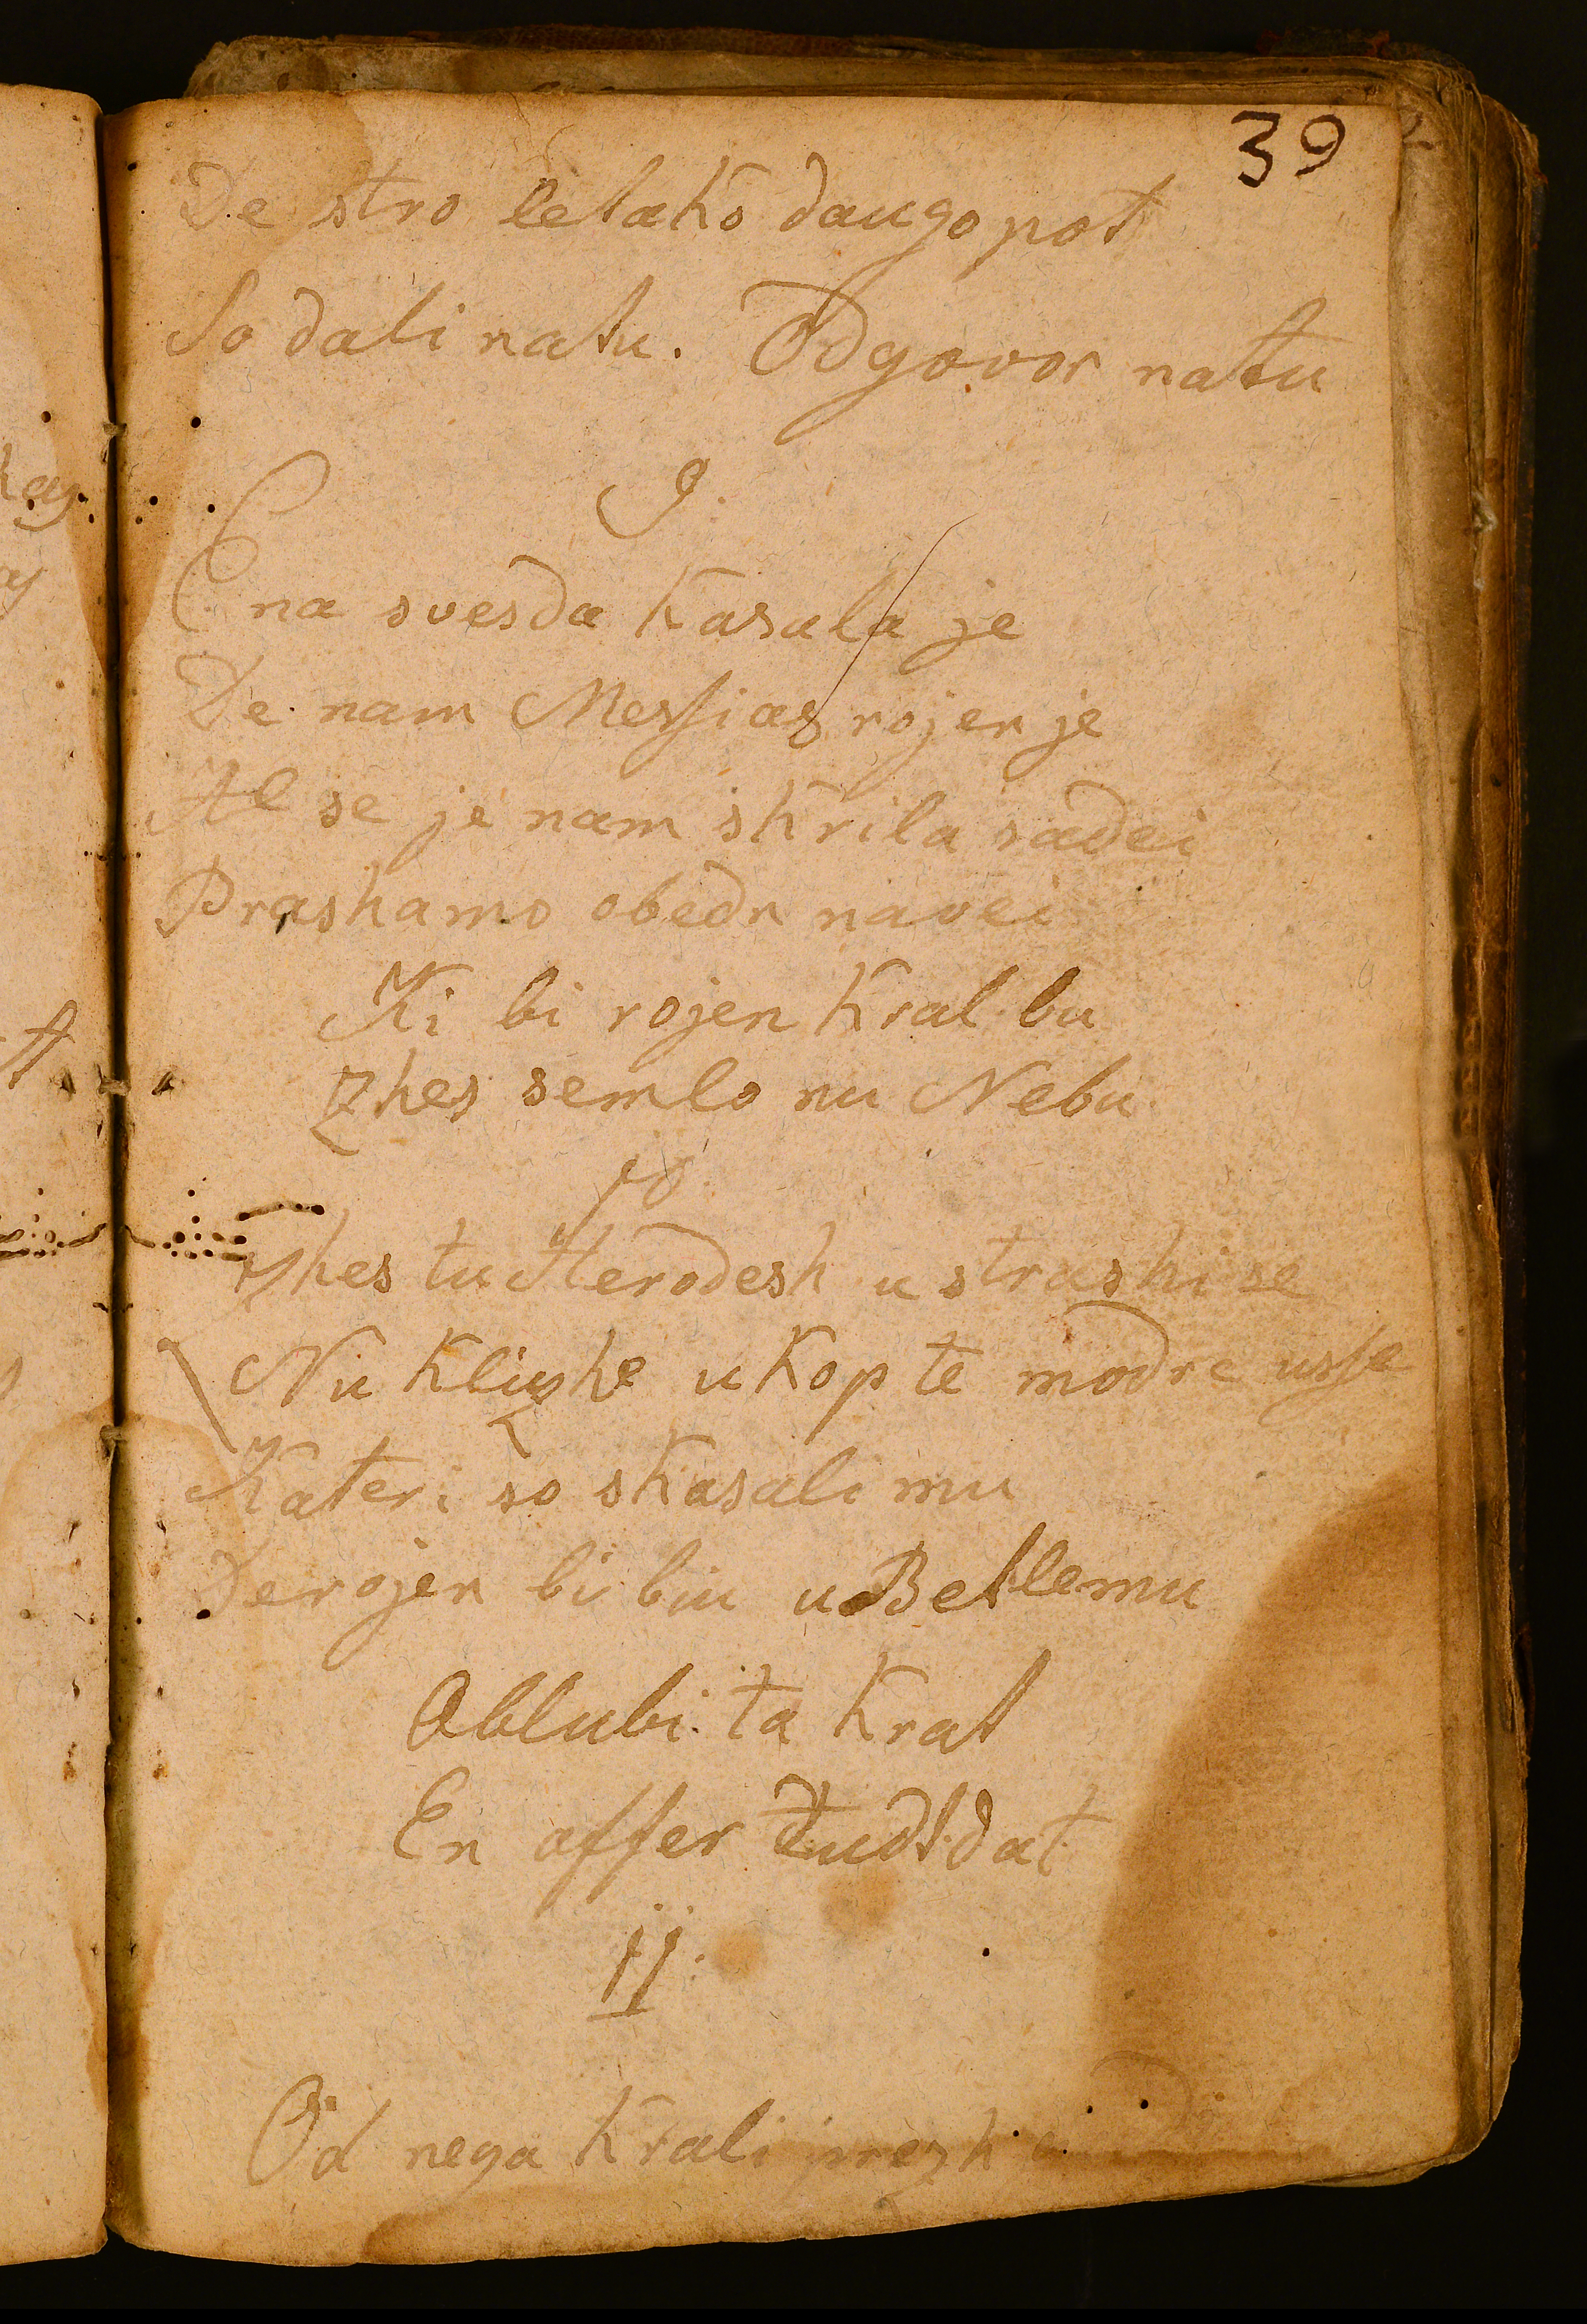 39
De stro letako daugo pot
So dali natu. Odgovor natu
9.
Ena svesda kasala je
De nam Messias rojen je
Al se je nam skrila sadei
Prashamo obedn navei
Ki bi rojen Kral bu
Zhes semlo nu Nebu
10.
Zhes tu Herodesh ustrashi se
Nu klizhe ukop te modre usse
Kateri so skasali mu
De rojen bi biu u Betlemu
Oblubi ta krat
En offer tudt dat
11.
Od nega Krali prezh